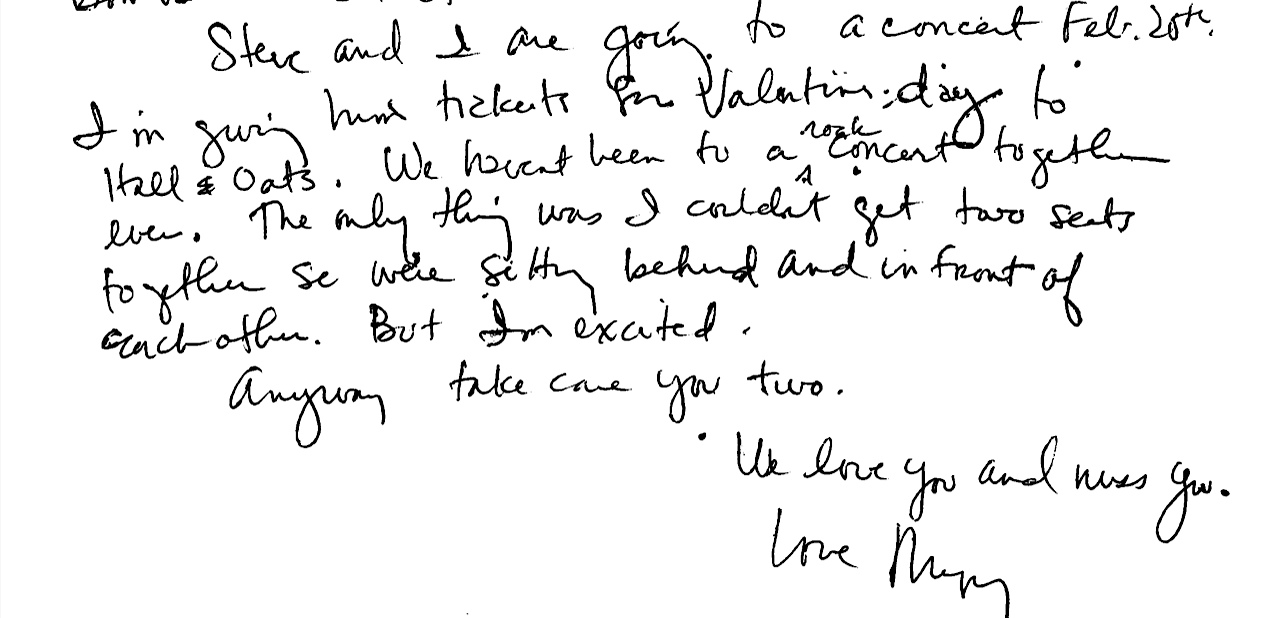 Steve and I are going to a concert Feb. 20th.
I'm giving him tickets for Valentines day to
Hall & Oats. We havent been to a rock concert together
ever. The only thing was I couldnt get two seats
together so we're sitting behind and in front of
each other. But I'm excited.
Anyway take care you two.
We love you and miss you.
Love